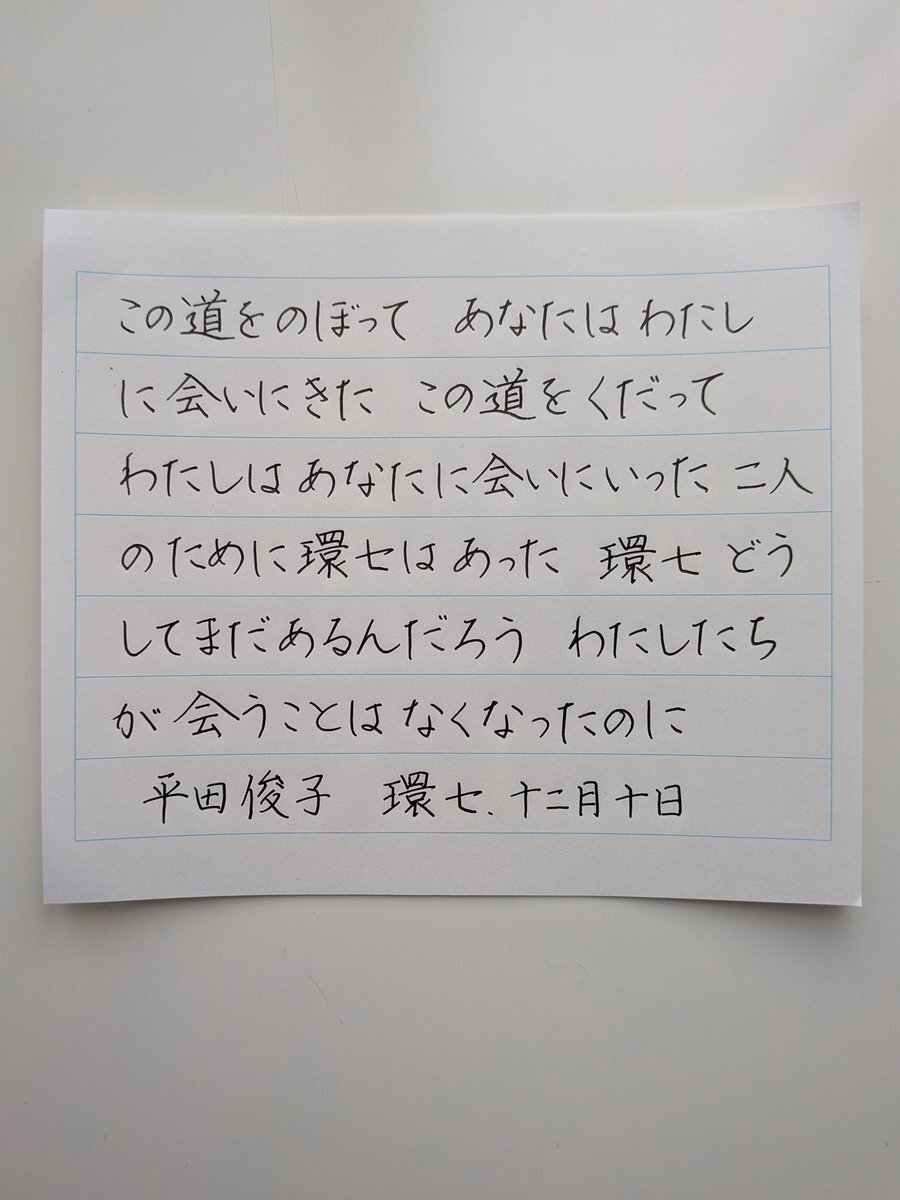 この道をのぼって　あなたはわたし
に会いにきた　この道をくだって
わたしはあなたに会いにいった 二人
のために環七はあった　環七 どう
してまだあるんだろう　わたしたち
が会うことはなくなったのに
平田俊子　環七、十二月十日